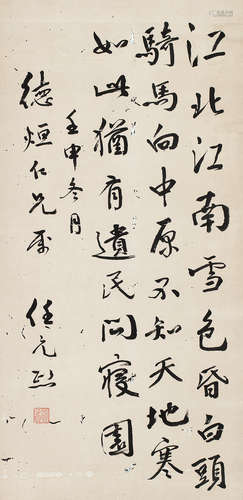 江北江南雪色昏白頭
騎馬向中原不知天地寒
如此猶有遺民問寢園
壬申冬月
德烜仁兄屬
任元熙